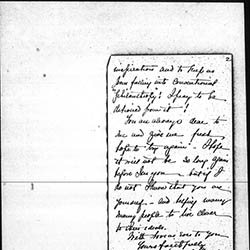 2
inspiration and to keep us
from falling into conventional
"philanthropy"! I pray to be
delivered from it!
You are always dear to
me and give me fresh
hope to try again - I hope
it will not be so long again
before I see you - but if I
do not I know that you are
yourself - and helping many
many people to live closer
to their ideals.
With love as ever to you
Yours faithfully